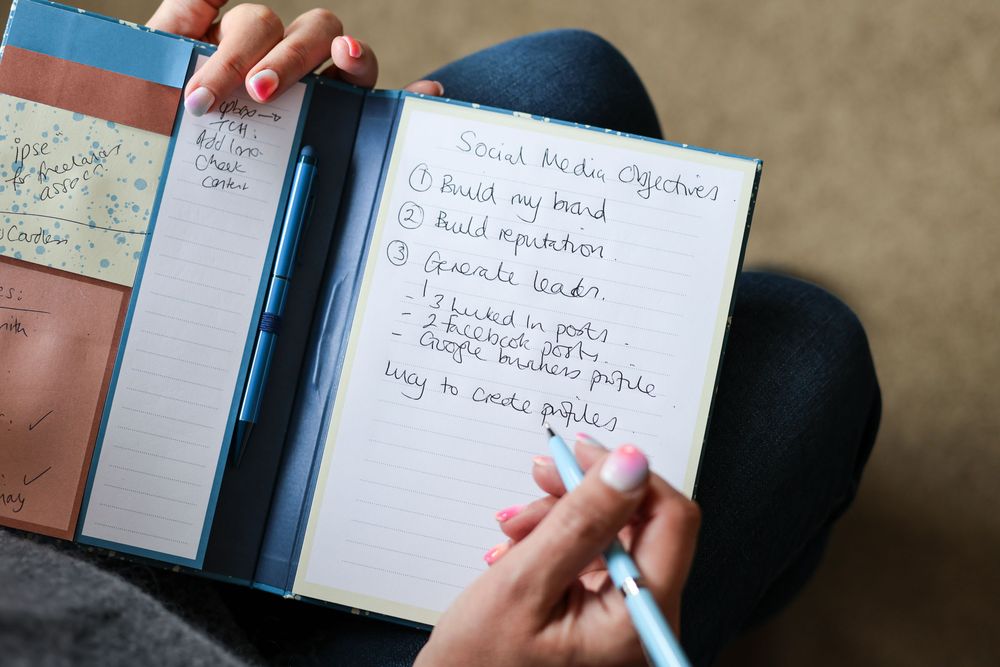 ipse
for freelancers
assoc.
Carden
es:
TCH.
Add
Check
content
Social Media Objectives
① Build my brand
② Build reputation.
③ Generate leads.
- 3 Linked in posts.
- 2 Facebook posts.
- Google business profile.
Lucy to create profiles.